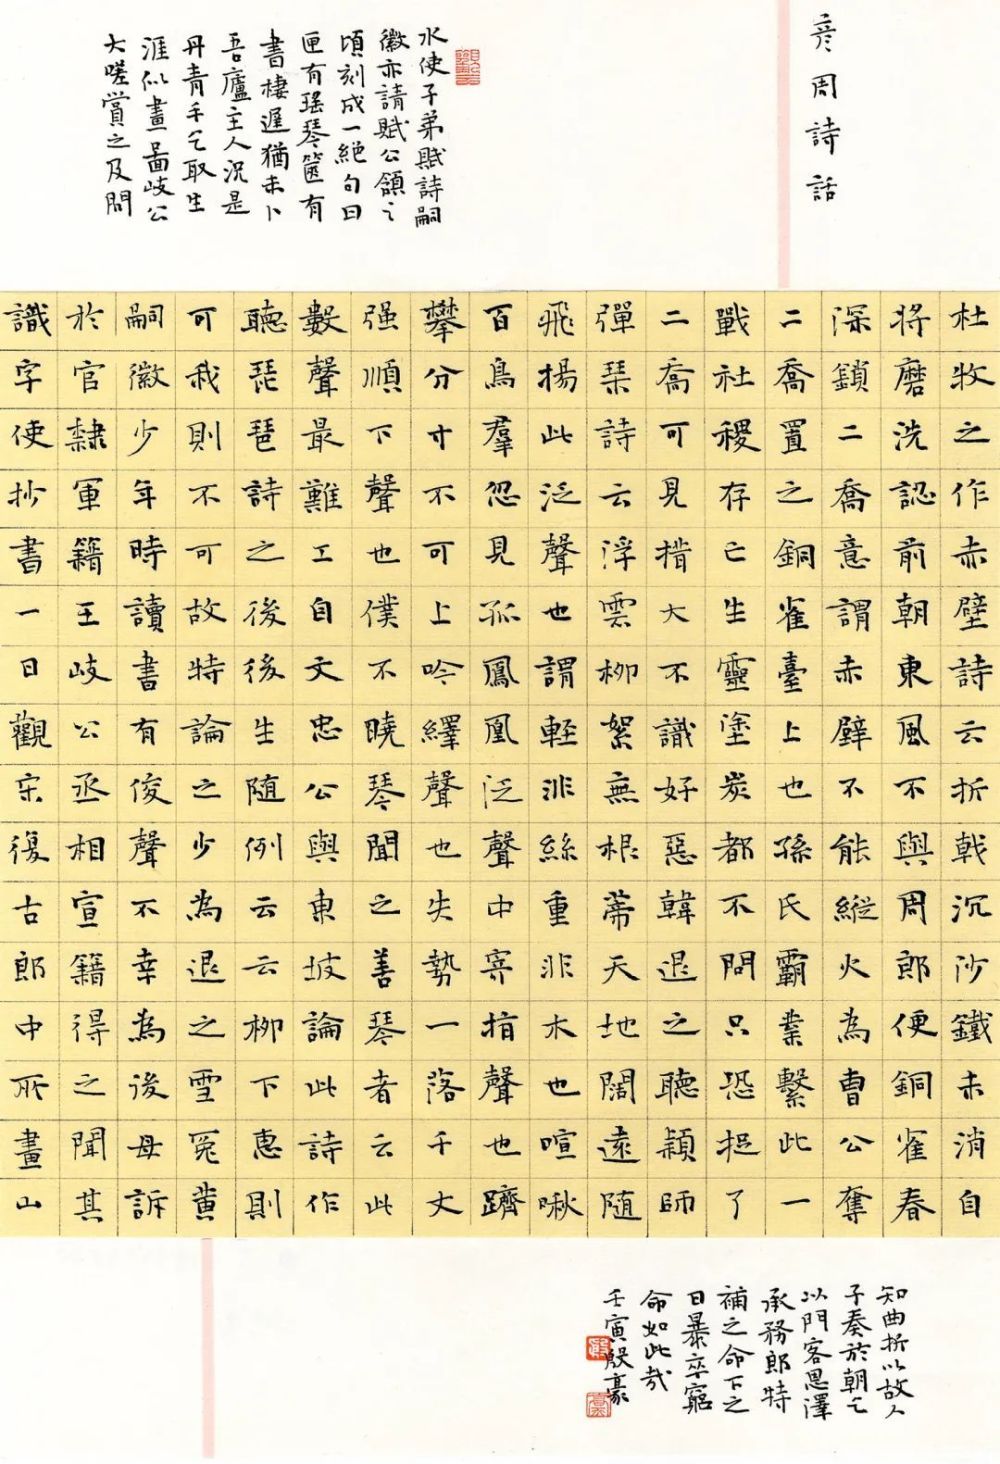 彦周詩話
杜牧之作赤壁詩云折戟沉沙鐵未消自
将磨洗認前朝東風不與周郎便銅雀春
深鎖二喬意謂赤壁不能縱火為曹公奪
二喬置之銅雀臺上也孫氏霸業繫此一
戰社稷存亡生靈塗炭都不問只恐捉了
二喬可見措大不識好惡韓退之聽穎師
彈琴詩云浮雲柳絮無根蒂天地闊遠隨
飛揚此泛聲也謂輕非絲重非木也喧啾
百鳥羣忽見孤鳳凰泛聲中寄指聲也躋
攀分寸不可上吟繹聲也失勢一落千丈
强順下聲也僕不曉琴聞之善琴者云此
數聲最難工自文忠公與東坡論此詩作
聽琵琶詩之後後生随例云云柳下惠則
可我則不可故特論之少為退之雪冤黄
嗣徽少年時讀書有俊聲不幸為後母訴
於官隸軍籍王岐公丞相宣籍得之聞其
識字使抄書一日觀宋復古郎中所畫山
水使子弟賦詩嗣
徽亦請賦公領之
頃刻成一絕句曰
匣有瑤琴篋有
書棲遲猶未卜
吾廬主人況是
丹青手乞取生
涯似畫圖岐公
大嗟賞之及問
知曲折以故人
子奏於朝乞
以門客恩澤
承務郎特
補之命下之
日暴卒窮
命如此哉
壬寅殷豪